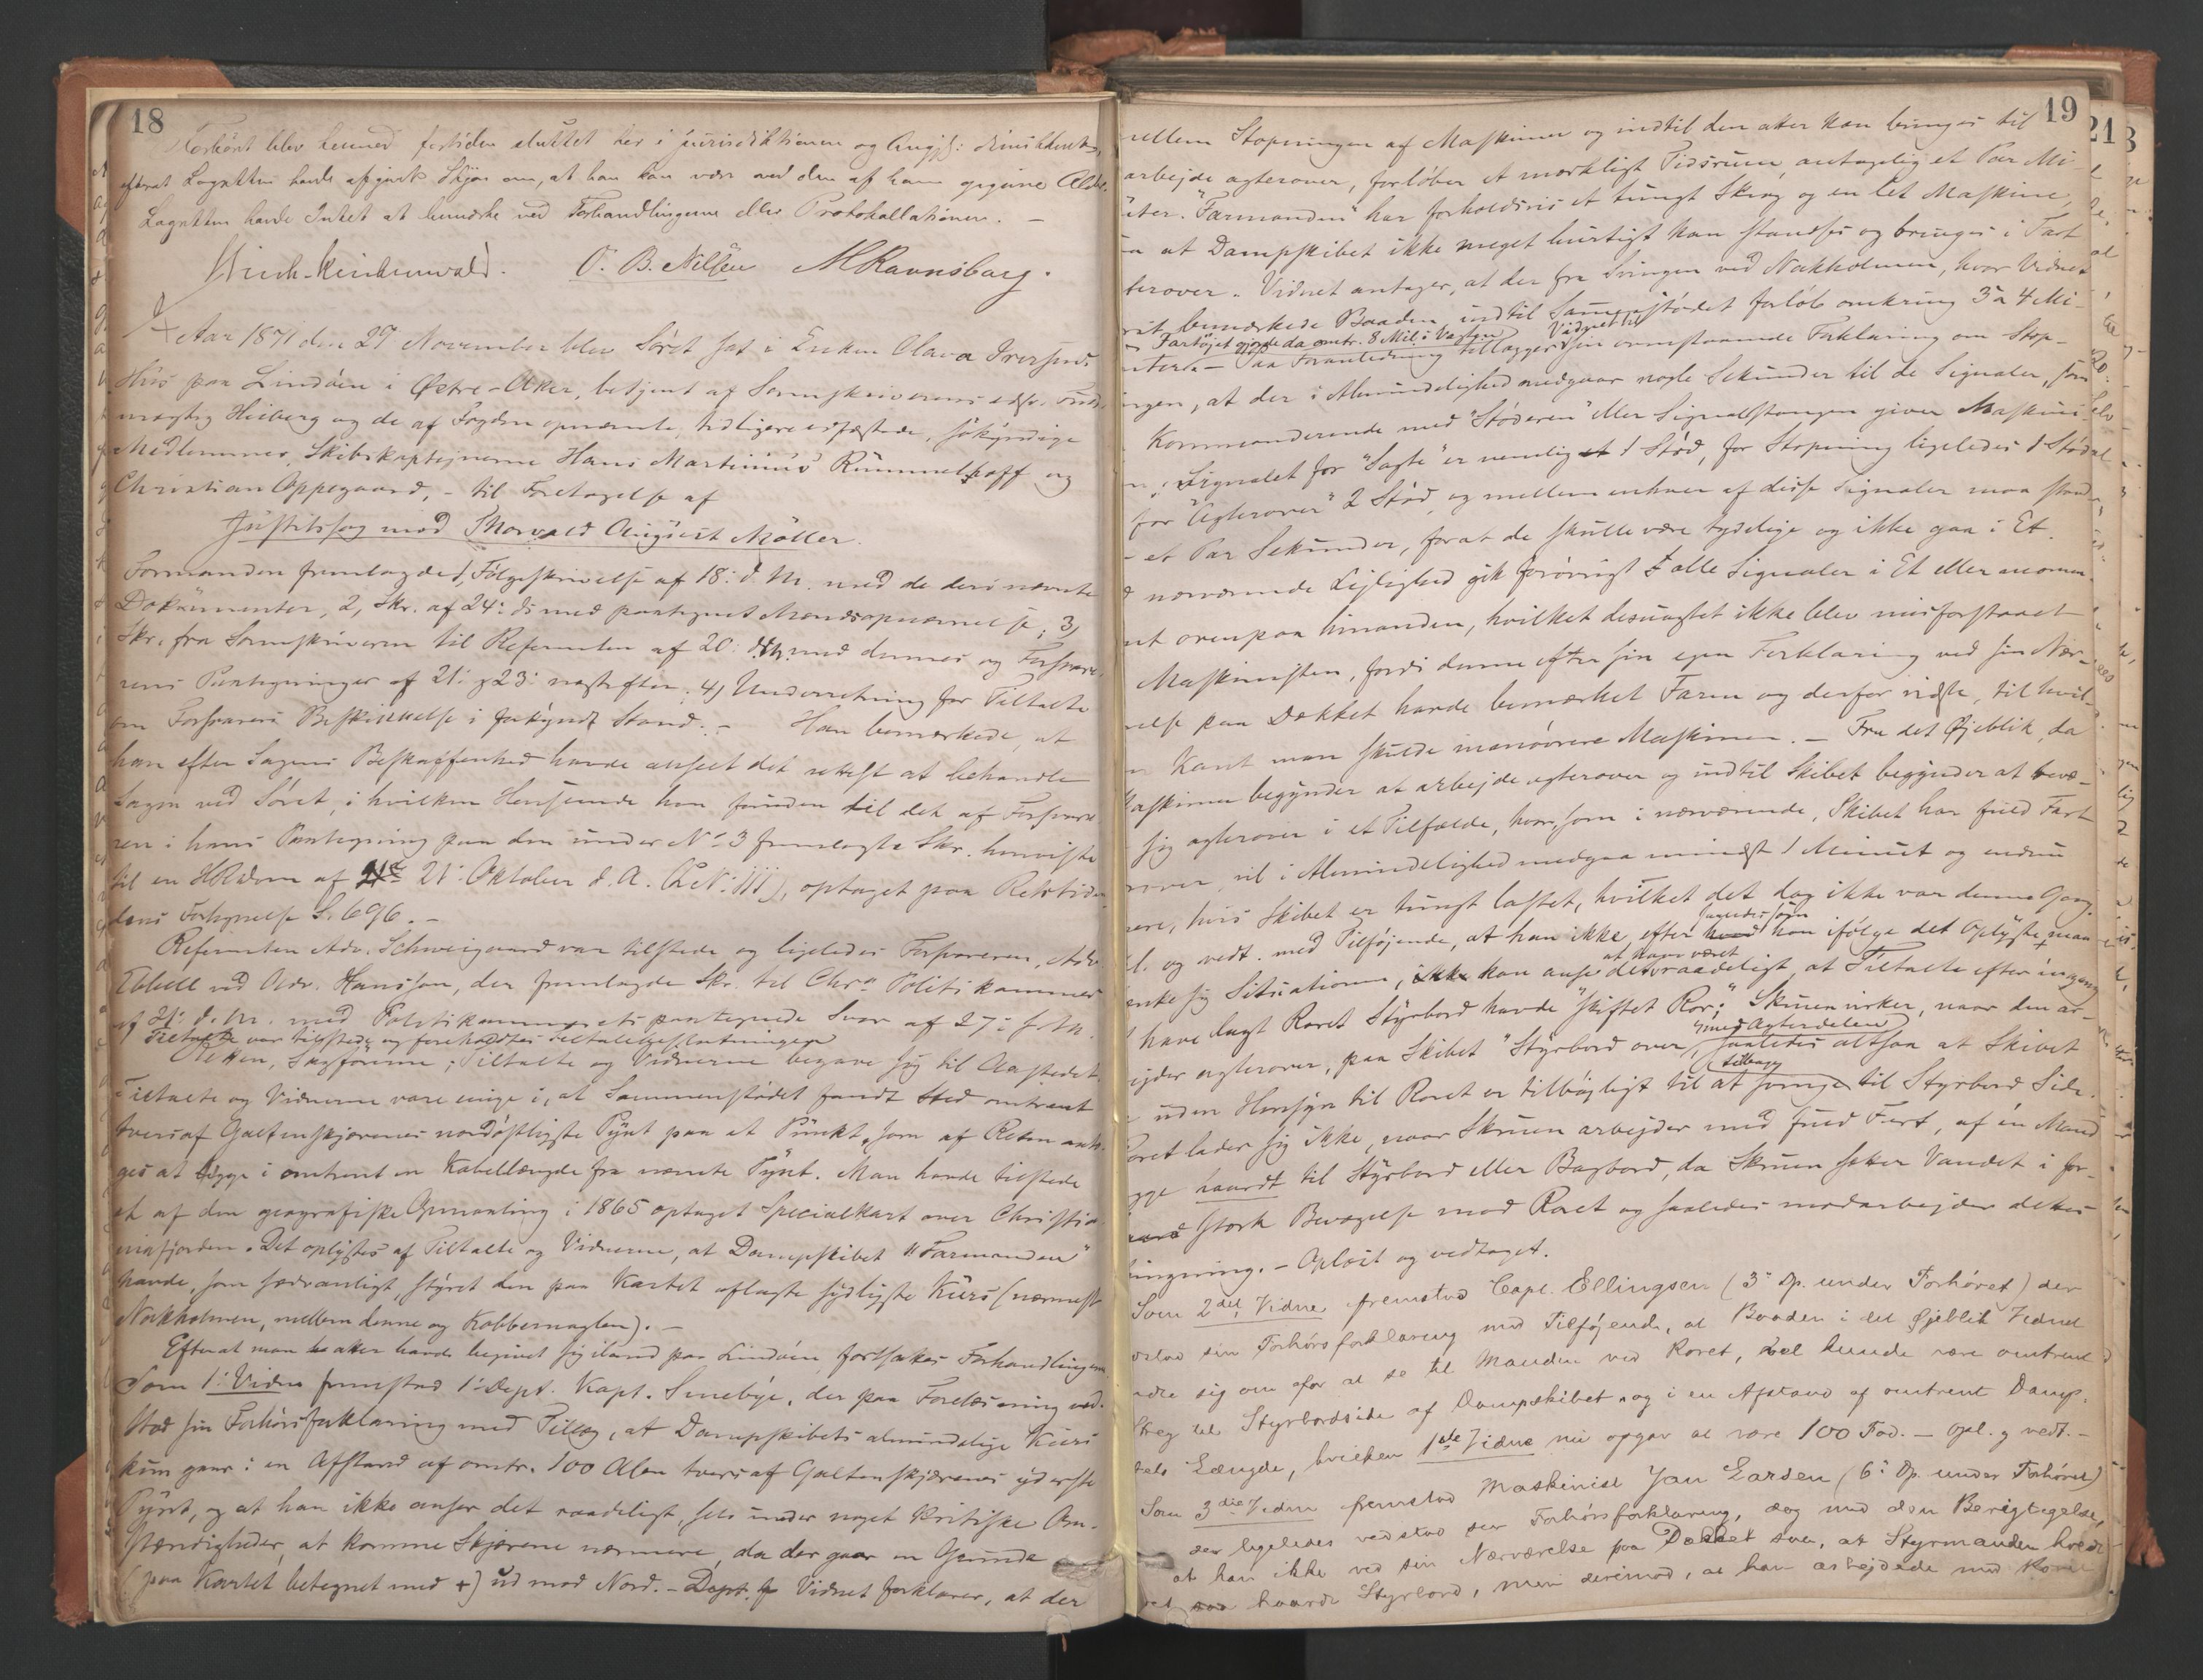 18
Forhøret blev hermed fortiden sluttet her i Jurisdiktionen og Angjf: dimitteret,
efterat Lagretten havde afgivet Skjøn om, at han kan være ved den af ham opgivne Alder.
Lagretten havde Intet at bemærke ved Forhandlingerne eller Protokollationen. –
O. B. Nilsen M Ravnsborg.
Aar 1871 den 29 November blev Søret sat i Enken Olava Iversens
Hus paa Lindøen i Østre-Aker, betjent af Sorenskriverens edsv. Fuld-
mægtig Heiberg og de af Fogden opnævnte, tidligere edfæstede, søkyndige
Medlemmer, Skibskaptejnerne Hans Martinius Rummelhoff og
Christian Oppegaard, – til Foretagelse af
Justitssag mod Thorvald August Møller.
Formanden fremlagde 1, Følgeskrivelse af 18: d. M. med de deri nævnte
Dokumenter, 2, Skr. af 24: ds med paategnet Mændsopnævnelse; 3,
Skr. fra Sorenskriveren til Referenten af 20: d. M. med dennes og Forsvare-
rens Paategninger af 21: & 23: næstefter; 4, Underretning for Tiltalte
om Forsvarers Beskikkelse i sakyndt Stand. – Han bemærkede, at
han efter Sagens Beskaffenhed havde anseet det rettest at behandle
Sagen ved Søret, i hvilken Henseende han foruden til det af Forsvare-
ren i hans Paategning paa den under No 3 fremlagte Skr. henviste
til en HRdom af 21: Oktober d. A. optaget paa Retstiden-
dens Fortegnelse S. 696. –
Referenten Adv. Schweigaard var tilstede og ligeledes Forsvareren, Adv.
ved Adv. Hansson, der fremlagde Skr. til Chra Politikammer
af 21: d. M. med Politikammerets paategnede Svar af 27: s. M.
Tiltalte var tilstede og foreholdtes Tiltalebeslutningen
Retten, Sagførerne, Tiltalte og Vidnerne begave sig til Aastedet.
Tiltalte og Vidnerne vare enige i, at Sammenstødet fandt Sted omtrent
tversaf Galtenskjærenes nordøstligste Pynt paa et Punkt, som af Retten anto-
ges at ligge i omtrent en Kabellængde fra nævnte Pynt. Man havde tilstede
et af den geografiske Opmaaling i 1865 optaget Specialkart over Christia-
niafjorden. Det oplystes af Tiltalte og Vidnerne, at Dampskibet "Farmanden"
havde, som sædvanligt, styret den paa Kartet aflagte sydligste Kurs (nærmest
Nakholmen, mellem denne og Kobbernaglen). –
Efterat man atter havde begivet sig iland paa Lindøen fortsattes Forhandlingen
Som 1: Vidne fremstod 1: Dept. Kapt. Sinebye, der paa Forelæsning ved-
stod sin Forhørsforklaring med Tillæg, at Dampskibets almindelige Kurs
kun gaar i en Afstand af omtr. 100 Alen tversaf Galtenskjærenes yderste
Pynt, og at han ikke anser det raadeligt, selv under noget kritiske Om-
stændigheder, at komme Skjærene nærmere, da der gaar en Grunde
(paa Kartet betegnet med +) ud mod Nord. – Dept. Vidnet forklarer, at der
19
mellem Stopningen af Maskinen og indtil den atter kan bringes til
arbejde agterover, forløber et mærkeligt Tidsrum, antagelig et Par Mi-
nuter. "Farmanden" har forholdsvis et tungt Skrog og en let Maskine,
saa at Dampskibet ikke meget hurtigt kan standses og bringes i Fart
agterover. Vidnet antager, at der fra Svingen ved Nakholmen, hvor Vidnet
bemærkede Baaden indtil Sammenstødet forløb omkring 3 a 4 Mi-
Fartøjet gjorde da omtr. 8 Mil i Vagten Vidnet til
nuter. – Paa Foranledning tillægger sin ovenstaaende Forklaring om Stop-
ningen, at der i Almindelighed medgaar nogle Sekunder til de Signaler, som
Kommanderende med "Støderen" eller Signalstangen giver Maskini-
Signalet for "Sagte" er nemlig 1 Stød, for Stopning ligeledes 1 Stød
for "Agterover" 2 Stød, og mellem enhver af disse Signaler maa
et Par Sekunder, forat de skulle være tydelige og ikke gaa i Et.
nærværende Lejlighed gik forøvrigt alle Signaler i Et eller momen-
ovenpaa hinanden, hvilket desuagtet ikke blev misforstaaet
Maskinisten, fordi denne efter sin egen Forklaring ved sin Nær-
værelse paa Dækket havde bemærket Faren og derfor vidste, til hvil-
ken Kant man skulde manøvrere Maskinen. – Fra det Øjeblik, da
Maskinen begynder at arbejde agterover og indtil Skibet begynder at bevæ-
ge sig agterover i et Tilfælde, hvor, som i nærværende, Skibet har fuld Fart
forover, vil i Almindelighed medgaa mindst 1 Minut og endnu
mere, hvis Skibet er tungt lastet, hvilket det dog ikke var denne Gang.
Opl. og vedt. med Tilføjende, at han ikke, efter hvad han ifølge det Oplyste maa
at have været
tænke sig Situationen, kan anse det raadeligt, at Tiltalte efter engang
at have lagt Roret Styrbord havde "skiftet Ror;" Skruen virker, naar den ar-
med Agterdelen
bejder agterover, paa Skibet "Styrbord over", saaledes altsaa at Skibet
uden Hensyn til Roret er tilbøjeligt til at svinge til Styrbord Side.
Roret lader sig ikke, naar Skruen arbejder med fuld Fart, af én Mand
lægge haardt til Styrbord eller Bagbord, da Skruen sætter Vandet i for-
stærk Bevægelse mod Roret og saaledes modarbejder dettes
svingning. – Oplæst og vedtaget.
Som 2det Vidne fremstod Capt. Ellingsen (3: Dp. under Forhøret) der
vedstod sin Forhørsforklaring med Tilføjende, at Baaden i det Øjeblik Vidnet
vendte sig om for at se til Manden ved Roret, vel kunde være omtrent
Streg til Styrbordside af Dampskibet, og i en Afstand af omtrent Damp-
skibets Længde, hvilken 1ste Vidne nu opgav at være 100 Fod. – Opl. og vedt. –
Som 3die Vidne fremstod Maskinist Jan Larsen (6: Dp. under Forhøret)
der ligeledes vedstod sin Forhørsforklaring, dog med den Berigtigelse,
at han ikke ved sin Nærværelse paa Dækket saa, at Styrmanden
haardt Styrbord, men derimod, at han arbejdede med Roret
21